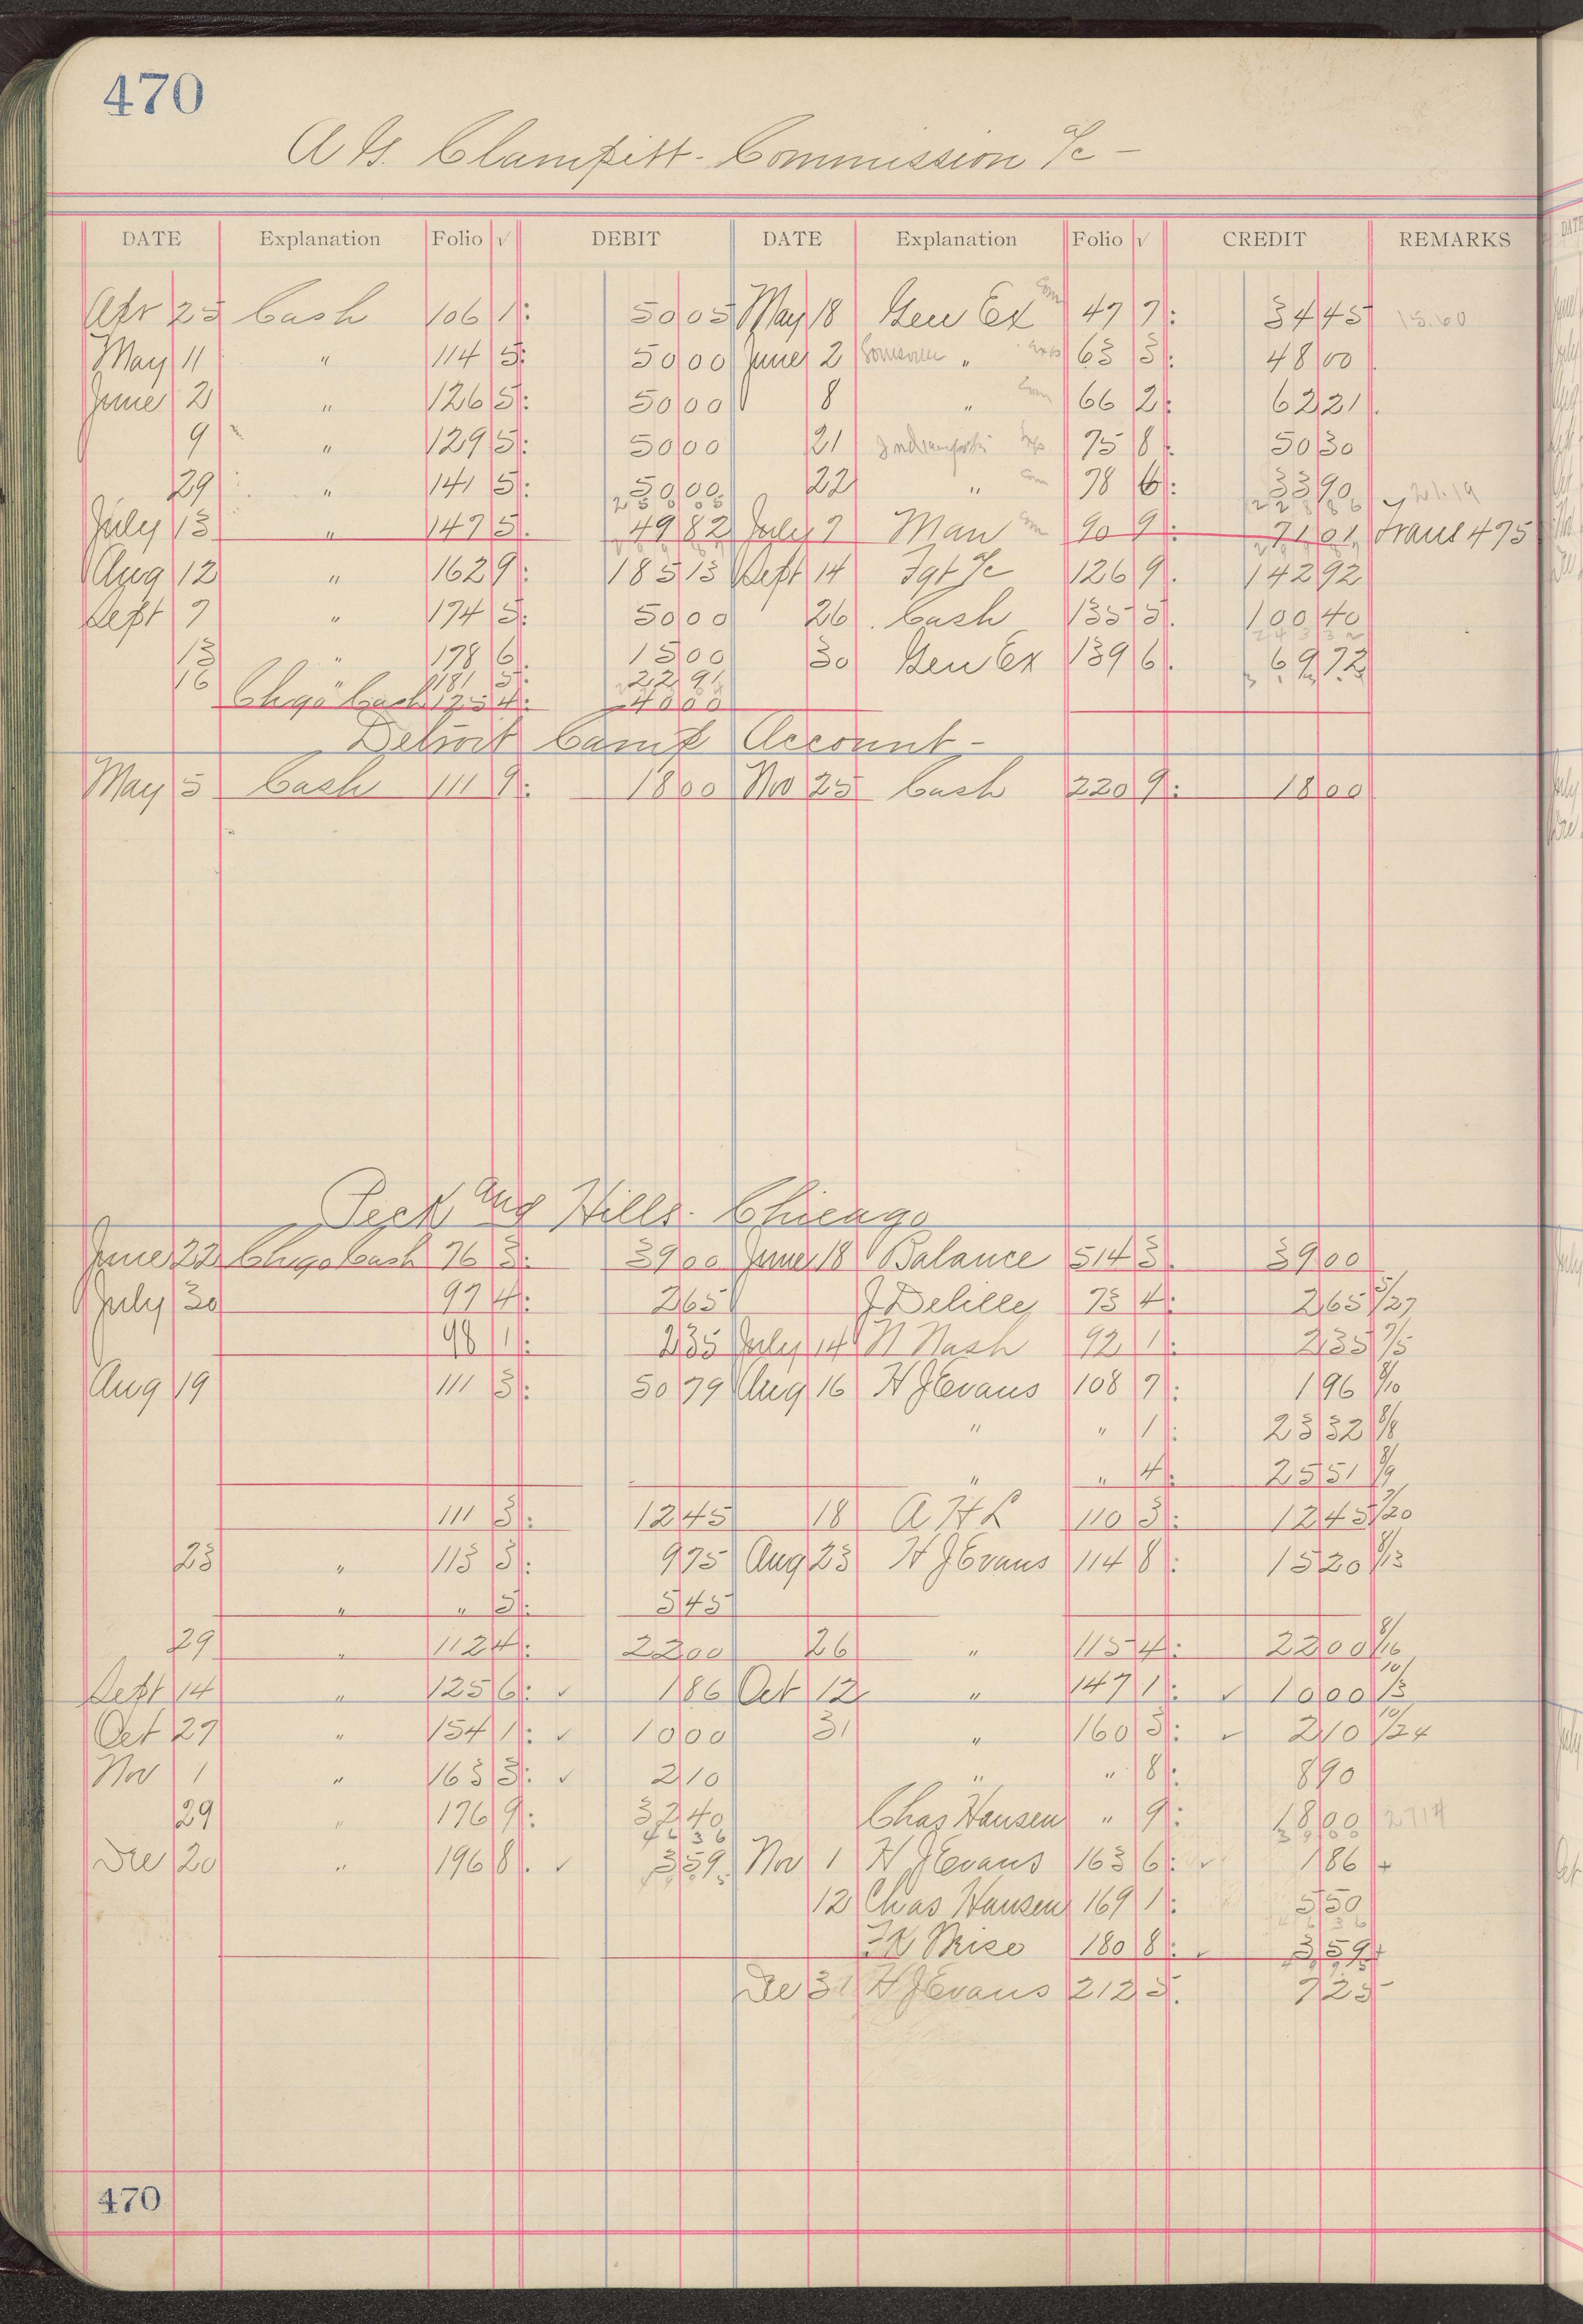 470
A G. Clampitt - Commission a/c -
DATE Explanation Folio √ DEBIT DATE Explanation Folio √ CREDIT REMARKS
Apr 25 Cash 106 1: 50 05 May 18 Gen Ex Com 47 7: 34 45 15.60
May 11 " 114 5: 50 00 June 2 " Exp 63 3: 48 00
June 2 " 126 5: 50 00 8 " Com 66 2: 62 21
9 " 129 5: 50 00 21 Indianapolis Exp 75 8: 50 30
29 " 141 5: 50 00 22 " Com 78 6: 33 90 21.19
250 05 228 86
July 13 " 147 5. 49 82 July 7 Man Com 90 9: 71 01 trans 475
Aug 12 " 162 9: 185 13 Sept 14 Fgt a/c 126 9. 142 92
Sept 7 " 174 5: 50 00 26 Cash 135 5. 100 40
243 32
13 " 178 6. 15 00 30 Gen Ex 139 6. 69 72
16 " 181 5: 22 91
Chgo Cash 125 4: 40 00
Detroit Camp Account -
May 5 Cash 111 9: 18 00 Nov 25 Cash 220 9: 18 00
Peck and Hills - Chicago
June 22 Chgo Cash 76 3: 39 00 June 18 Balance 514 3. 39 00
July 30 97 4: 2 65 J Delille 73 4: 2 65 5/27
98 1: 2 35 July 14 N Nash 92 1: 2 35 7/5
Aug 19 111 3: 50 79 Aug 16 H J Evans 108 7: 1 96 8/10
" " 1: 23 32 8/8
" " 4: 25 51 8/9
111 3: 12 45 18 A H L 110 3: 12 45 7/20
23 " 113 3: 9 75 Aug 23 H J Evans 114 8: 15 20 8/13
" " 5: 5 45
29 " 112 4: 22 00 26 " 115 4: 22 00 8/16
Sept 14 " 125 6: ✓ 1 86 Oct 12 " 147 1: ✓ 10 00 10/3
Oct 27 " 154 1: ✓ 10 00 31 " 160 3: ✓ 2 10 10/24
Nov 1 " 163 3: ✓ 2 10 " " 8: 8 90
29 " 176 9: 32 40 Chas Hansen " 9: 18 00 27 14
46 36 39 00
Dec 20 " 196 8. ✓ 3 59 Nov 1 H J Evans 163 6: ✓ 1 86 +
12 Chas Hansen 169 1: 5 50
180 8: ✓ 3 59 +
Dec 31 H J Evans 212 5. 7 25
470